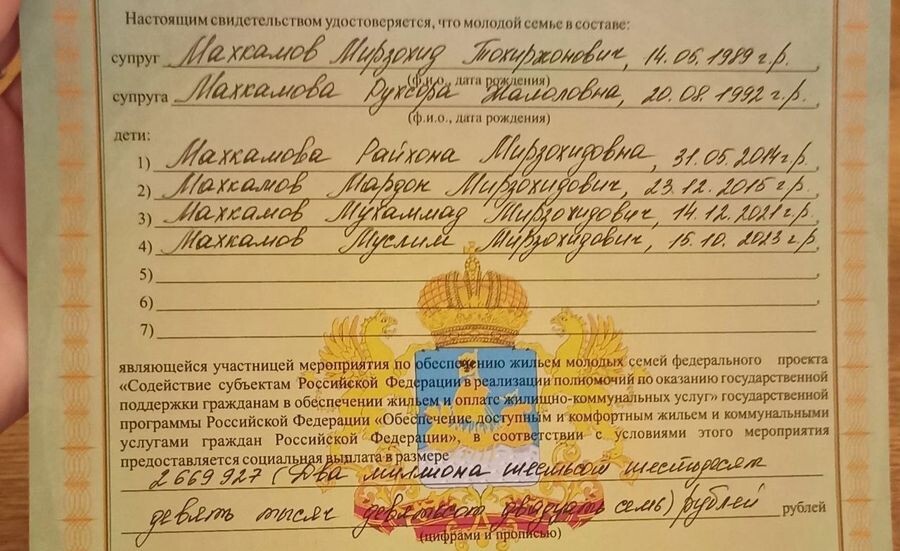 Настоящим свидетельством удостоверяется, что молодой семье в составе:
супруг Махкамов Мирзохид Тохиржонович, 14.05.1989 г.р.
(ф.и.о., дата рождения)
супруга Махкамова Рухсора Жалоловна, 20.08.1992 г.р.
(ф.и.о., дата рождения)
дети:
1) Махкамова Райхона Мирзохидовна, 31.05.2014 г.р.
2) Махкамов Мардон Мирзохидович, 23.12.2015 г.р.
3) Махкамов Мухаммад Мирзохидович, 14.12.2021 г.р.
4) Махкамов Муслим Мирзохидович, 15.10.2023 г.р.
5)
6)
7)
являющейся участницей мероприятия по обеспечению жильем молодых семей федерального проекта
«Содействие субъектам Российской Федерации в реализации полномочий по оказанию государственной
поддержки гражданам в обеспечении жильем и оплате жилищно-коммунальных услуг» государственной
программы Российской Федерации «Обеспечение доступным и комфортным жильем и коммунальными
услугами граждан Российской Федерации», в соответствии с условиями этого мероприятия
предоставляется социальная выплата в размере
2 669 927 (Два миллиона шестьсот шестьдесят
девять тысяч девятьсот двадцать семь) рублей рублей
(цифрами и прописью)